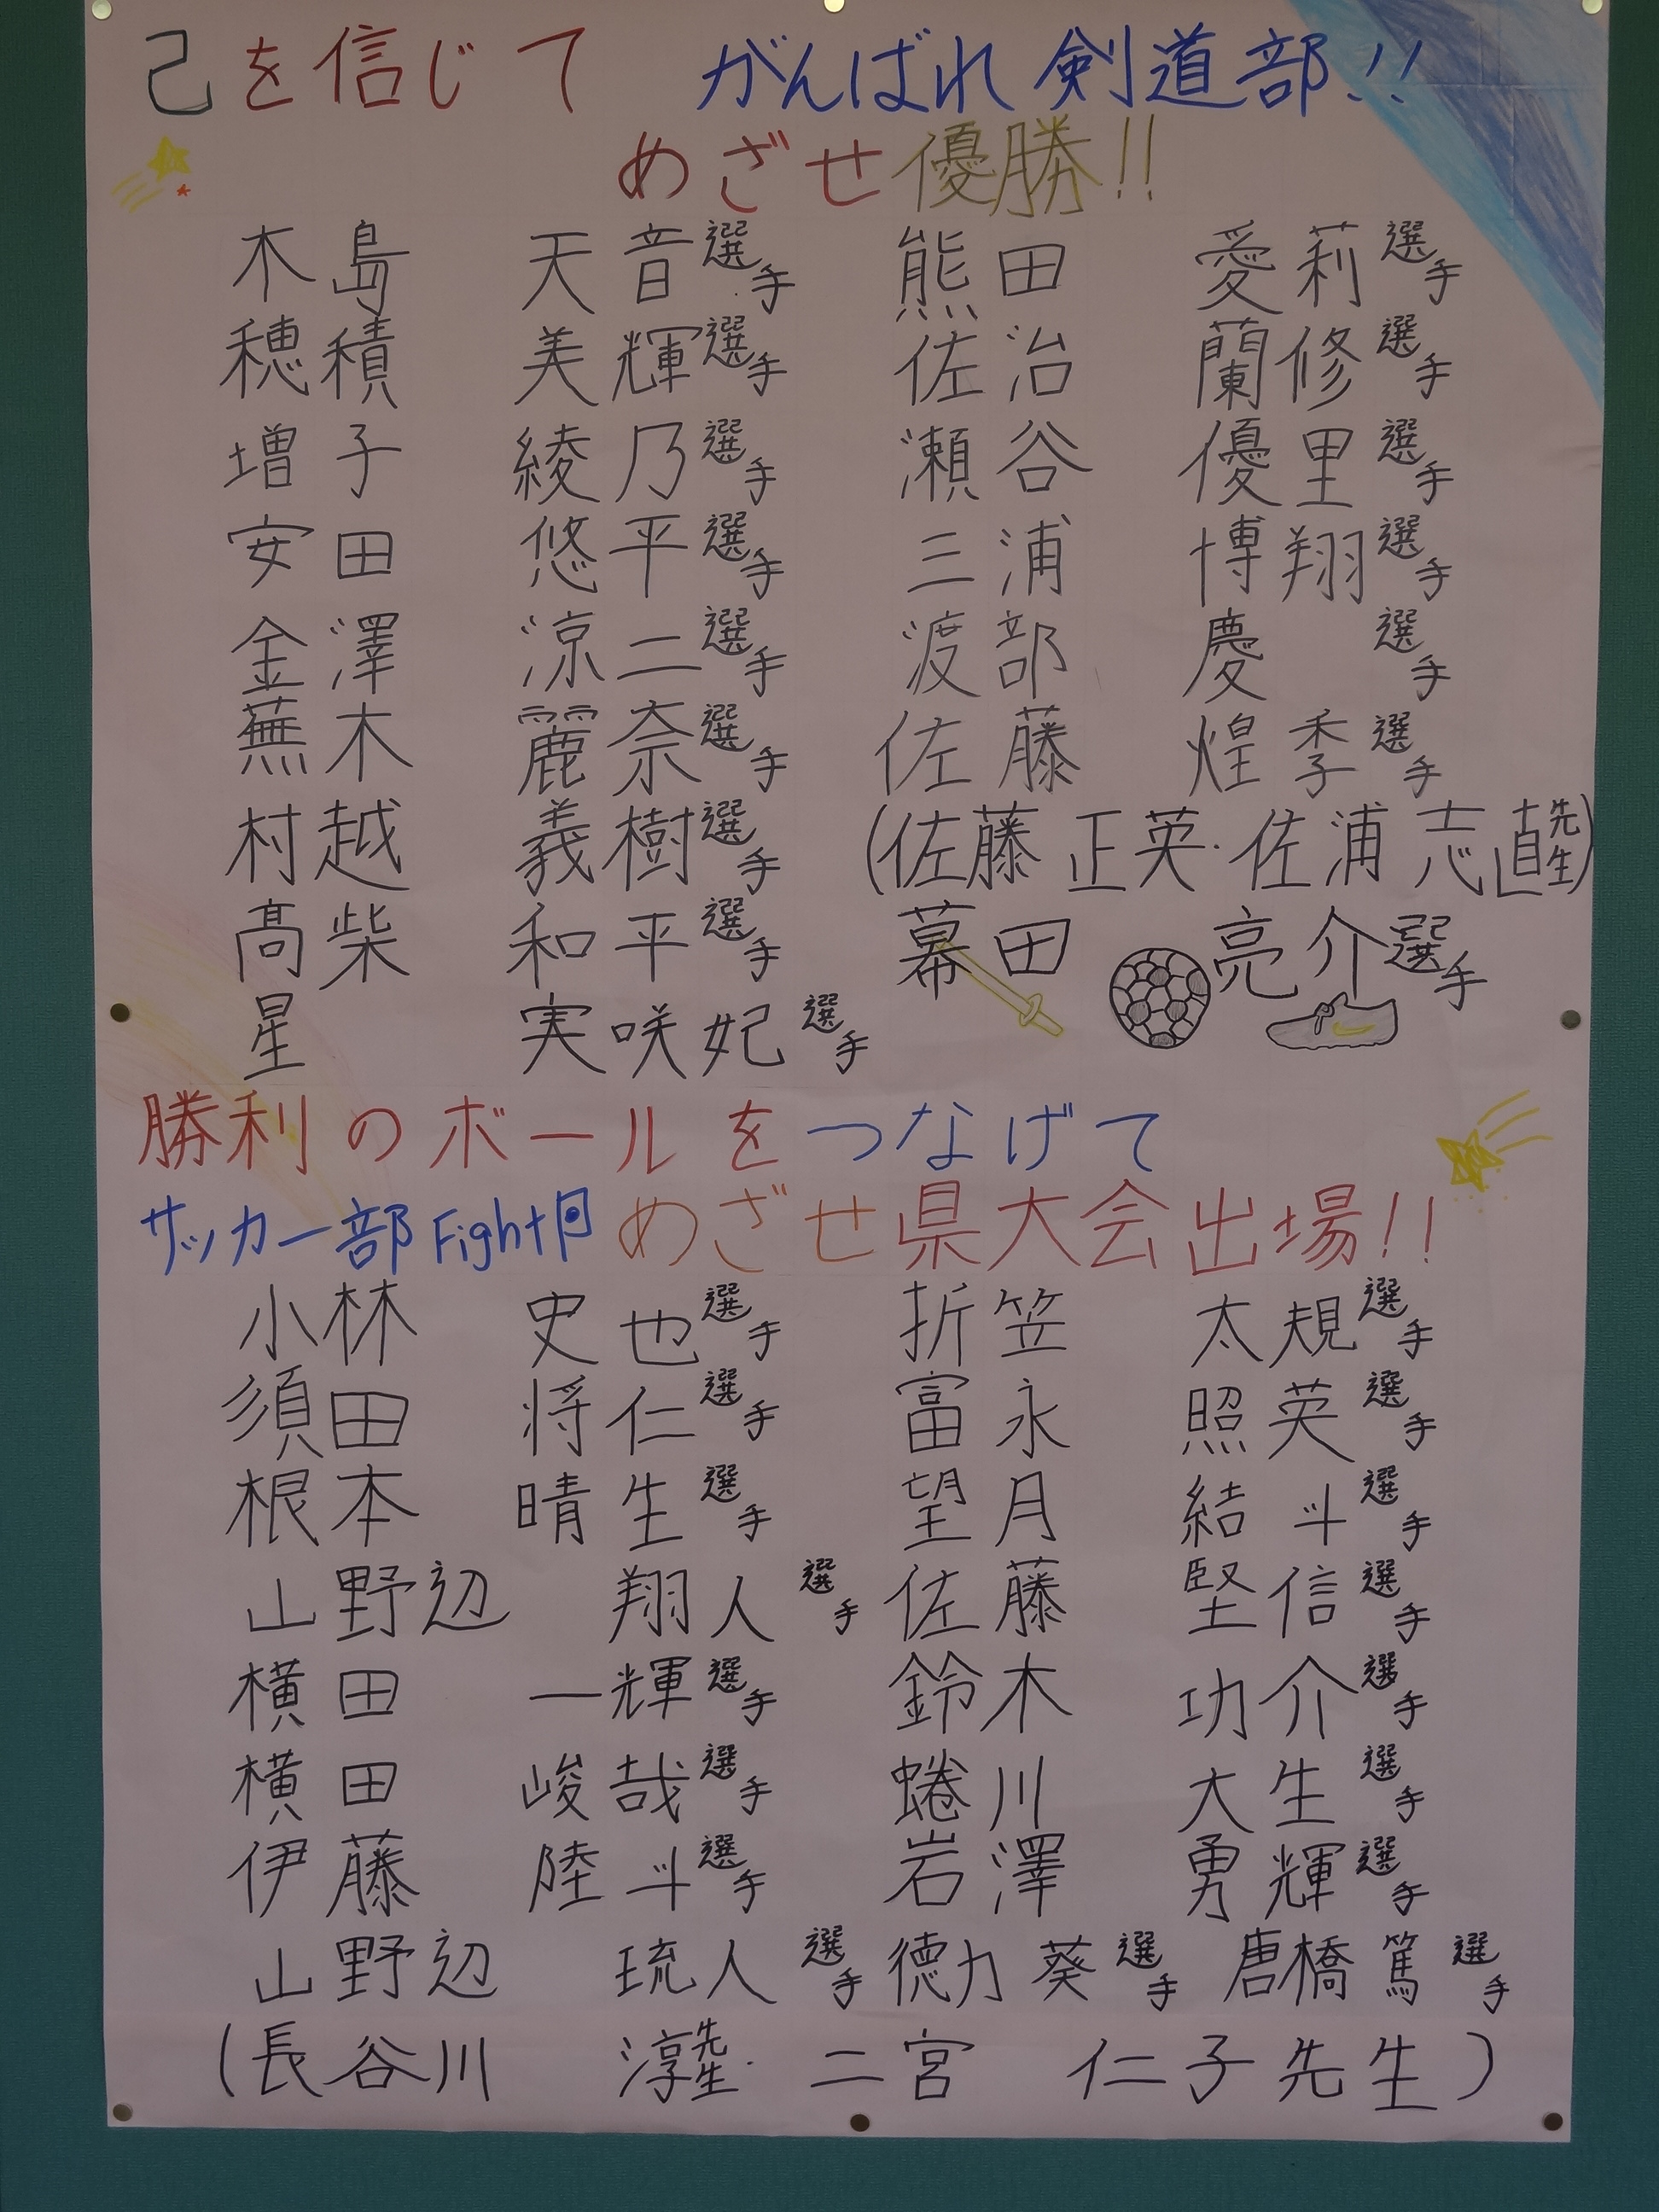 己を信じて がんばれ剣道部!!
めざせ優勝!!
木島 天音選手 熊田 愛莉選手
穂積 美輝選手 佐治 蘭修選手
増子 綾乃選手 瀬谷 優里選手
安田 悠平選手 三浦 博翔選手
金澤 涼二選手 渡部 慶 選手
蕪木 麗奈選手 佐藤 煌季選手
村越 義樹選手 (佐藤 正英・佐浦 志直先生)
高柴 和平選手 幕田 亮介選手
星 実咲妃選手
勝利のボールをつなげて
サッカー部Fight めざせ県大会出場!!
小林 史也選手 折笠 太規選手
須田 将仁選手 富永 照英選手
根本 晴生選手 望月 結斗選手
山野辺 翔人選手 佐藤 堅信選手
横田 一輝選手 鈴木 功介選手
横田 峻哉選手 蜷川 大生選手
伊藤 陸斗選手 岩澤 勇輝選手
山野辺 琉人選手 徳力 葵選手 唐橋 篤選手
(長谷川 淳先生・二宮 仁子先生)